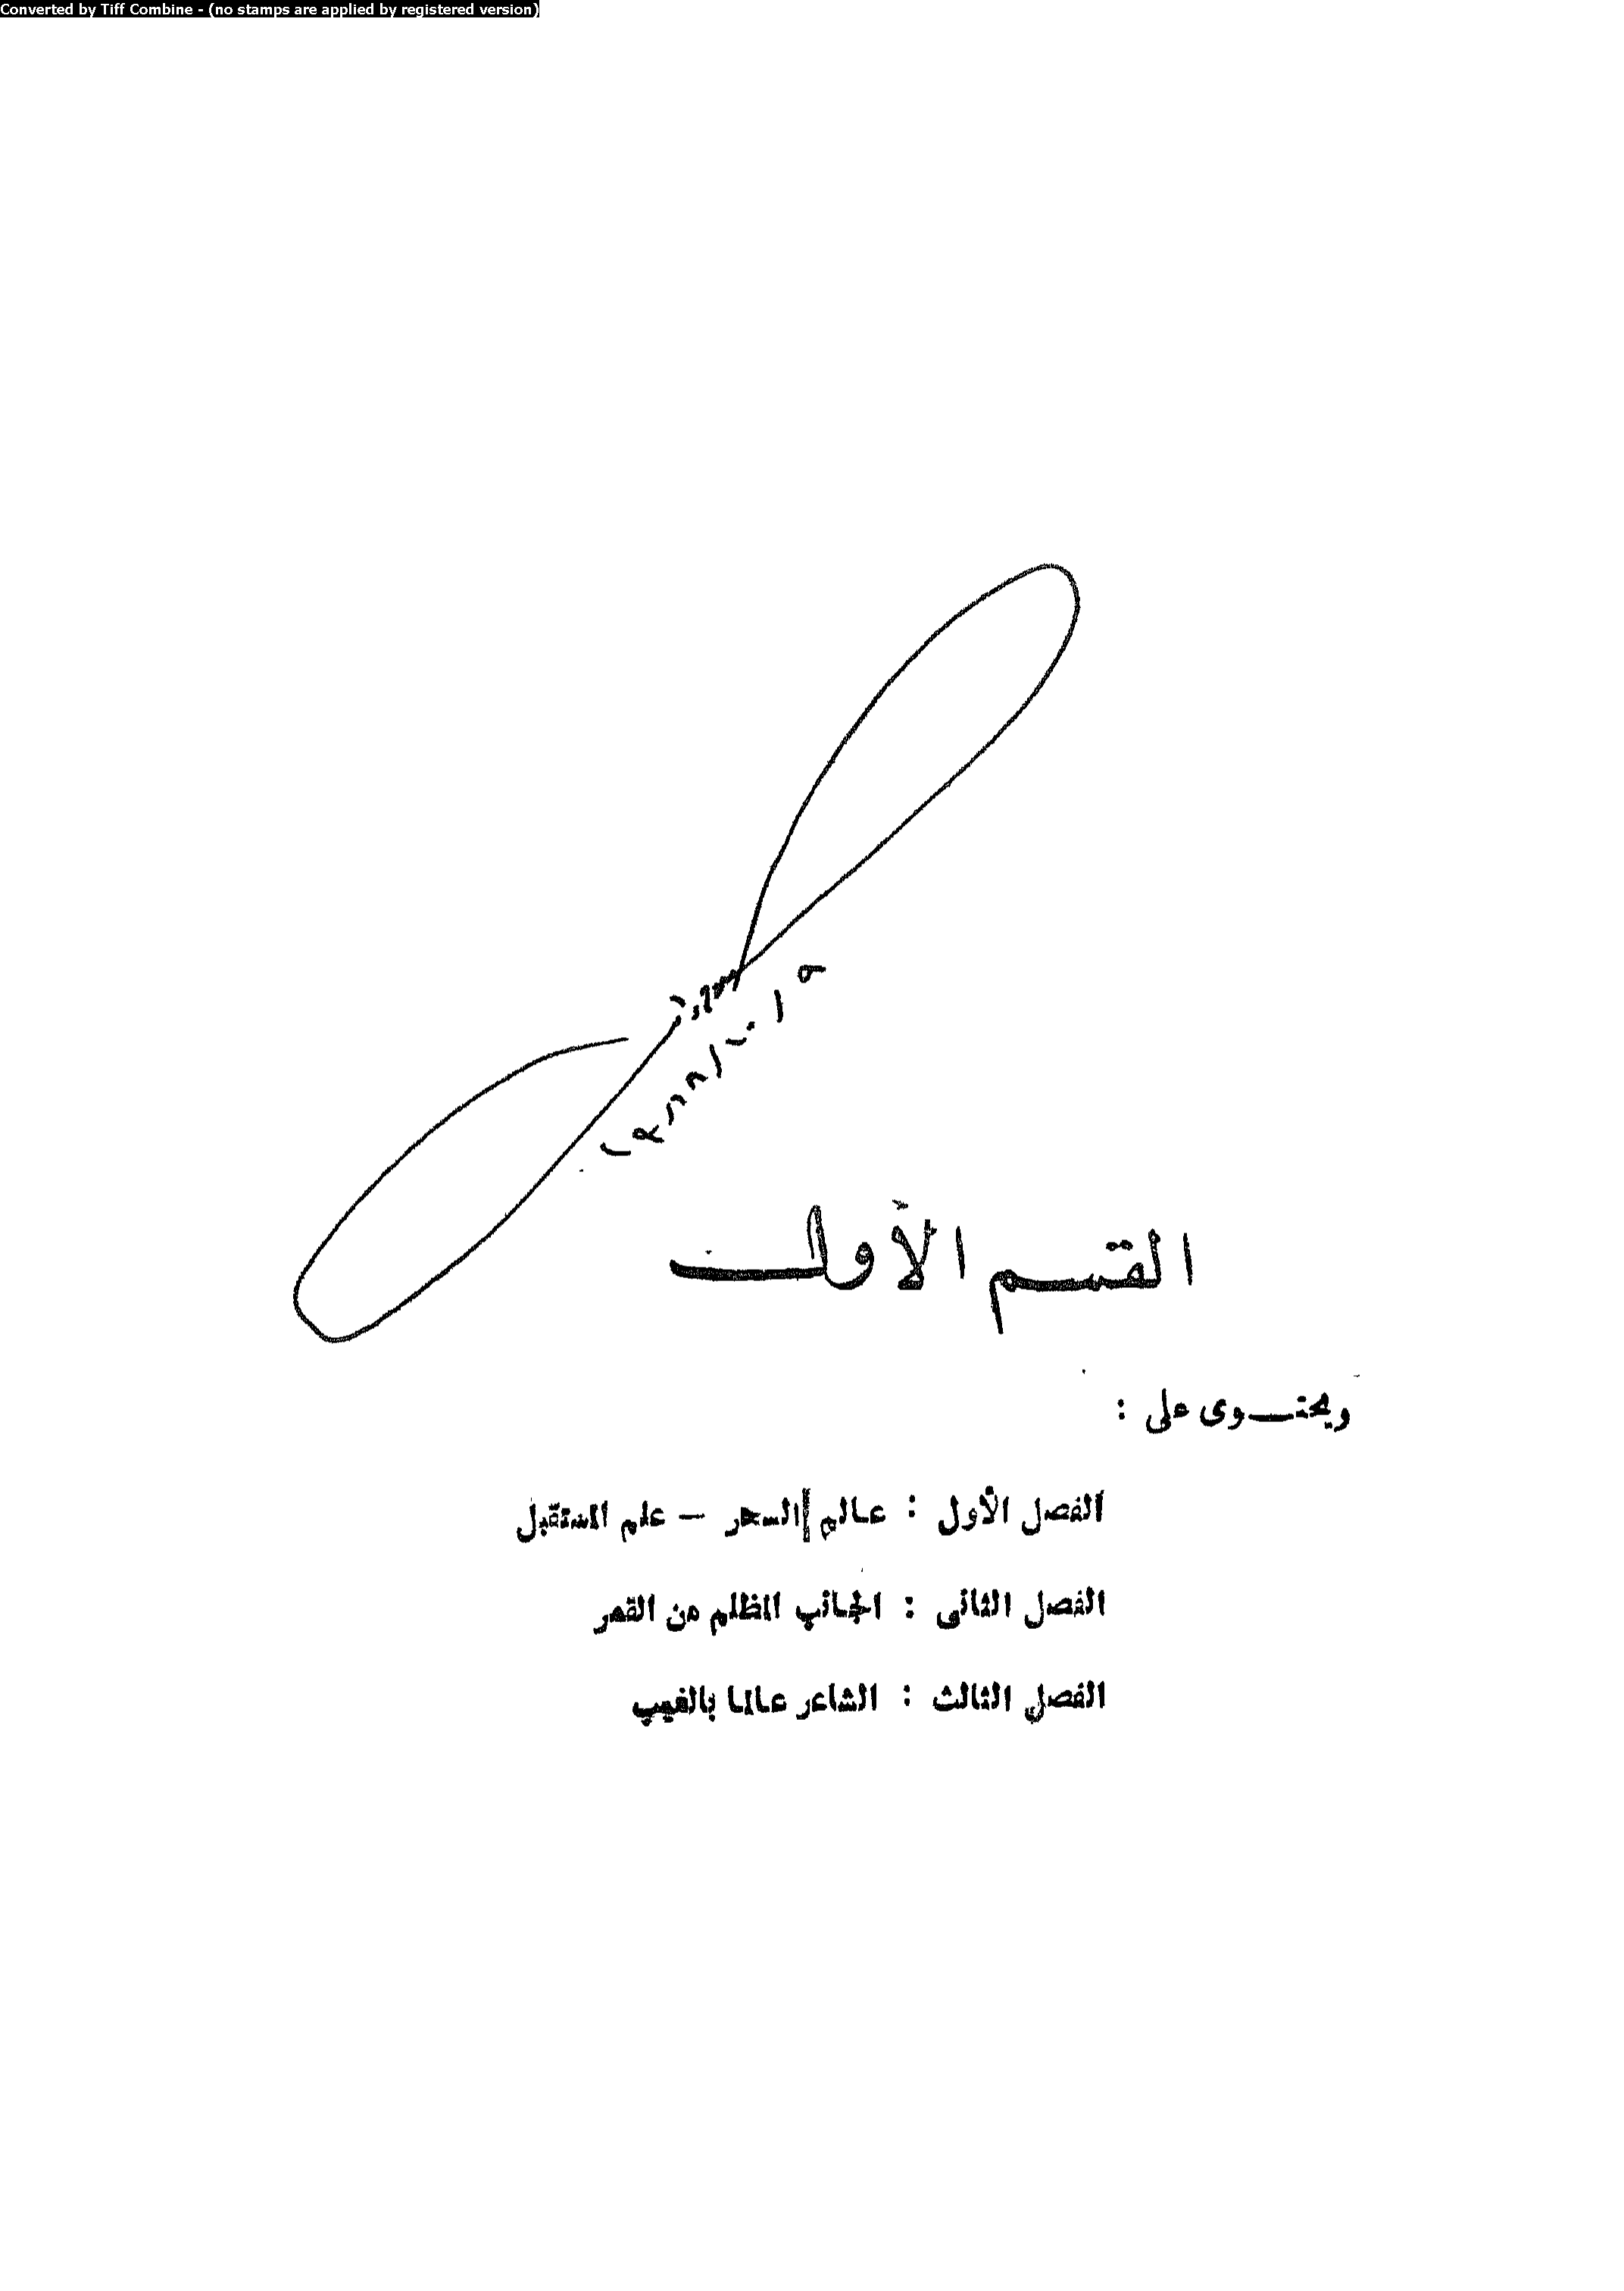 Converted by Tiff Combine - (no stamps are applied by registered version)
القسم الأول
ويحتوى على :
الفصل الأول : عالم السحر – علم المستقبل
الفصل الثانى : الجانب المظلم من القمر
الفصل الثالث : الشاعر عالما بالغيب